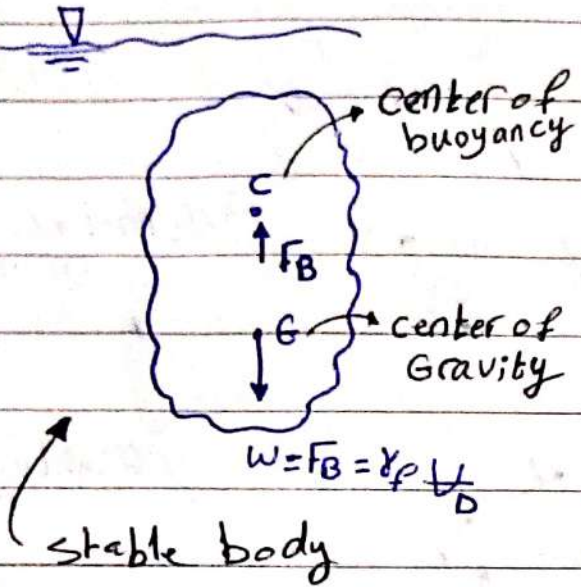 center of
buoyancy
C
F_B
G
center of
Gravity
W = F_B = γ_f V_D
stable body